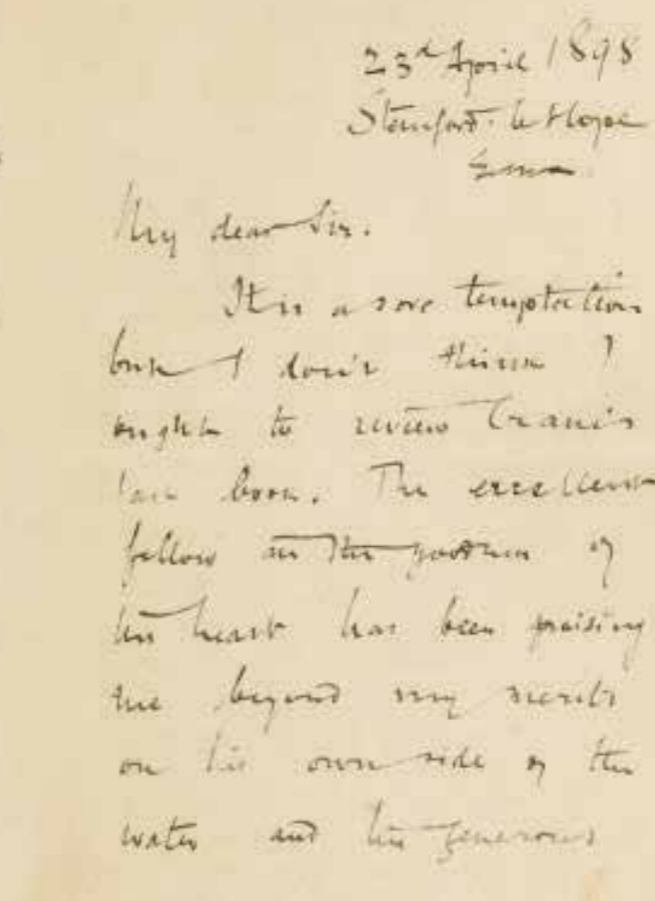 23d April 1898
Stanford-le-Hope
Essex
My dear Sir.
It is a sore temptation
but I don't think I
ought to review Crane's
last book. The excellent
fellow in the goodness of
his heart has been praising
me beyond my merits
on his own side of the
water and his generous